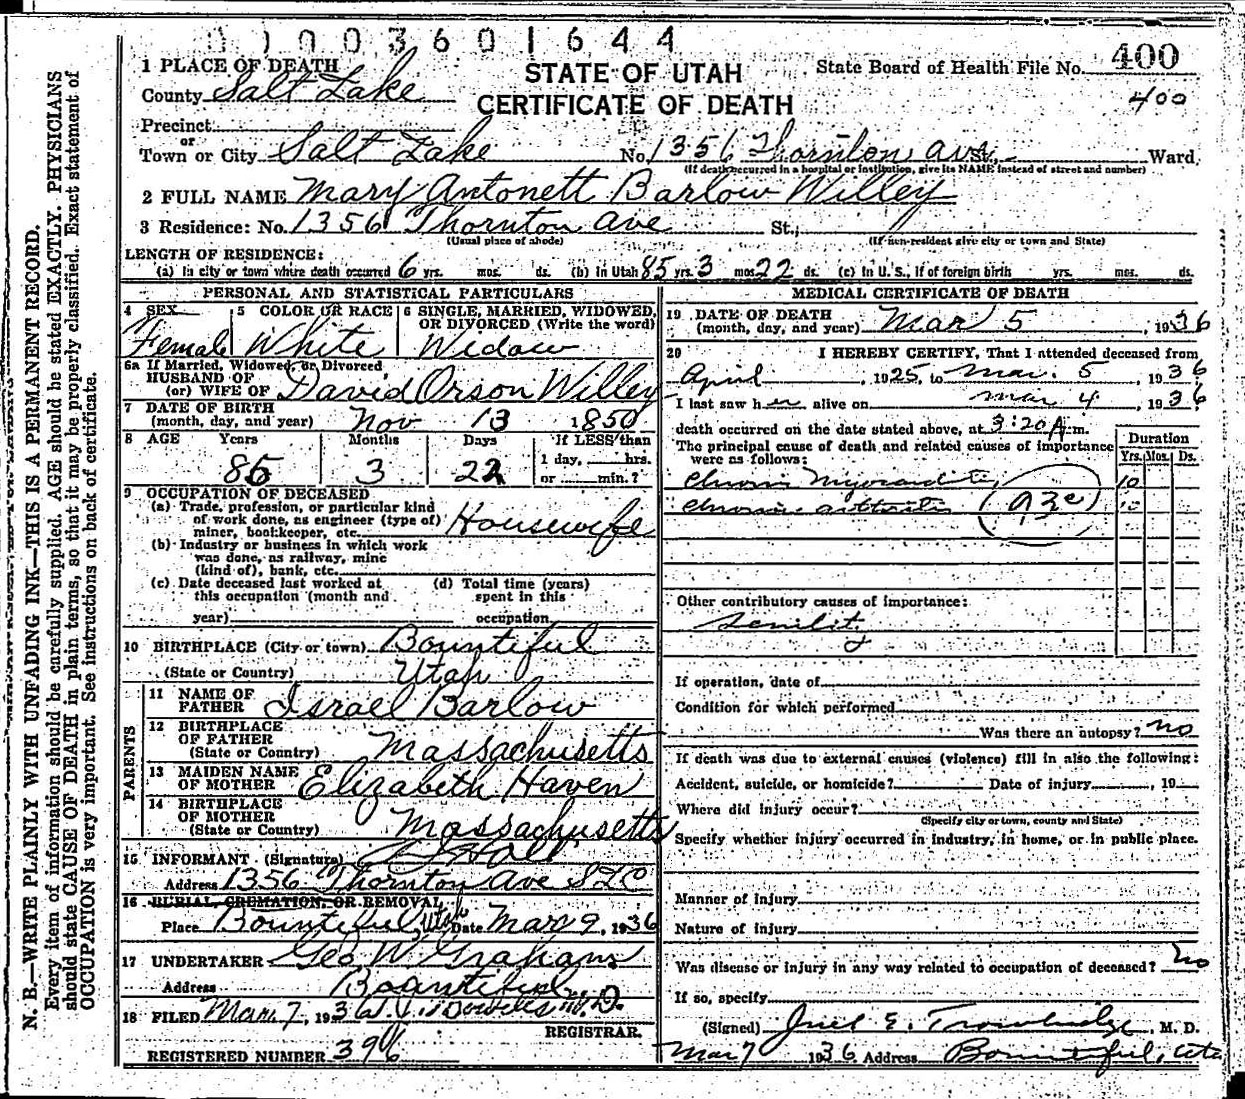 0 1 0 0 3 6 0 1 6 4 4
1 PLACE OF DEATH
STATE OF UTAH
CERTIFICATE OF DEATH
State Board of Health File No. 400
400
County Salt Lake
Precinct
or
Town or City Salt Lake No. 1356 Thornton Ave St., Ward
(If death occurred in a hospital or institution, give its NAME instead of street and number)
2 FULL NAME Mary Antonett Barlow Willey
3 Residence: No. 1356 Thornton Ave St.,
(Usual place of abode) (If non-resident give city or town and State)
LENGTH OF RESIDENCE:
(a) In city or town where death occurred 6 yrs. mos. ds. (b) In Utah 85 yrs. 3 mos. 22 ds. (c) In U. S., if of foreign birth yrs. mos. ds.
PERSONAL AND STATISTICAL PARTICULARS
4 SEX Female
5 COLOR OR RACE White
6 SINGLE, MARRIED, WIDOWED, OR DIVORCED (Write the word) Widow
6a If Married, Widowed, or Divorced
HUSBAND OF
(or) WIFE OF David Orson Willey
7 DATE OF BIRTH
(month, day, and year) Nov 13 1850
8 AGE Years Months Days If LESS than
85 3 22 1 day, hrs.
or min.?
9 OCCUPATION OF DECEASED
(a) Trade, profession, or particular kind
of work done, as engineer (type of)
miner, bookkeeper, etc. Housewife
(b) Industry or business in which work
was done, as railway, mine
(kind of), bank, etc.
(c) Date deceased last worked at
this occupation (month and
year)
(d) Total time (years)
spent in this
occupation
10 BIRTHPLACE (City or town) Bountiful
(State or Country) Utah
PARENTS
11 NAME OF
FATHER Israel Barlow
12 BIRTHPLACE
OF FATHER
(State or Country) Massachusetts
13 MAIDEN NAME
OF MOTHER Elizabeth Haven
14 BIRTHPLACE
OF MOTHER
(State or Country) Massachusetts
15 INFORMANT (Signature)
Address 1356 Thornton Ave SLC
16 BURIAL, CREMATION, OR REMOVAL
Place Bountiful, Utah Date Mar 9, 1936
17 UNDERTAKER Geo W Graham
Address Bountiful
18 FILED Mar 7, 1936 M.D.
REGISTRAR.
REGISTERED NUMBER 396
MEDICAL CERTIFICATE OF DEATH
19 DATE OF DEATH
(month, day, and year) Mar 5, 1936
20 I HEREBY CERTIFY, That I attended deceased from
April, 1925, to Mar. 5, 1936
I last saw her alive on Mar 4, 1936
death occurred on the date stated above, at 3:20 A.m.
The principal cause of death and related causes of importance
were as follows:
Duration
Yrs. Mos. Ds.
Chronic Myocarditis 10
Chronic arthritis (93c) 10
Other contributory causes of importance:
Senility
If operation, date of
Condition for which performed
Was there an autopsy? no
If death was due to external causes (violence) fill in also the following:
Accident, suicide, or homicide? Date of injury , 19
Where did injury occur?
(Specify city or town, county and State)
Specify whether injury occurred in industry, in home, or in public place.
Manner of injury
Nature of injury
Was disease or injury in any way related to occupation of deceased? no
If so, specify
(Signed) E. Trowbridge, M. D.
Mar 7 1936 Address Bountiful, Uta
N. B.—WRITE PLAINLY WITH UNFADING INK—THIS IS A PERMANENT RECORD.
Every item of information should be carefully supplied. AGE should be stated EXACTLY. PHYSICIANS
should state CAUSE OF DEATH in plain terms, so that it may be properly classified. Exact statement of
OCCUPATION is very important. See instructions on back of certificate.